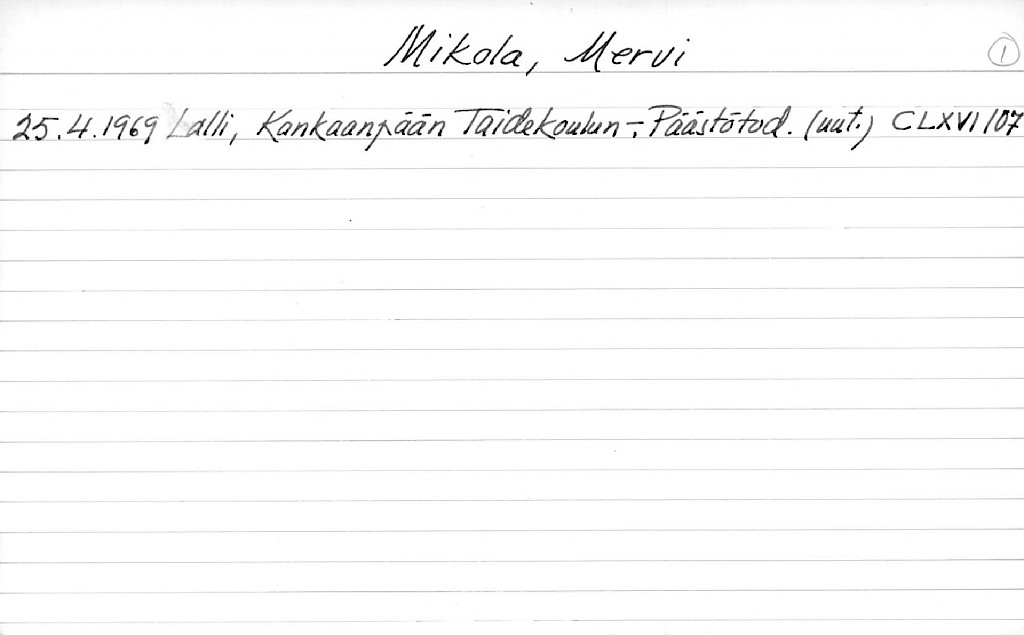 Mikola, Mervi
1
25.4.1969 Lalli, Kankaanpään Taidekoulun -; Päästötod. (uut.) CLXVI/07